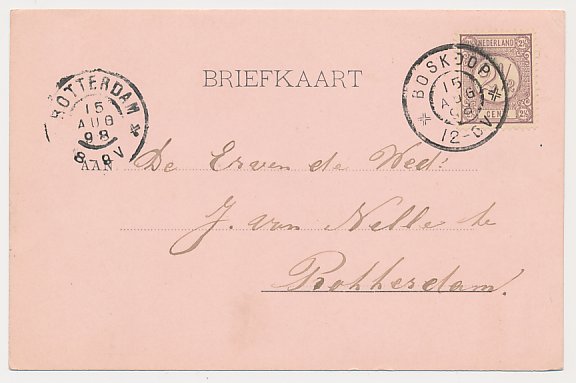 NEDERLAND
2½ 2½
CENT
BOSKOOP
15
AUG
98
12-
ROTTERDAM
15
AUG
98
8-9V
BRIEFKAART
AAN
De Erven de Wed:
J. van Nelle te
Rotterdam.